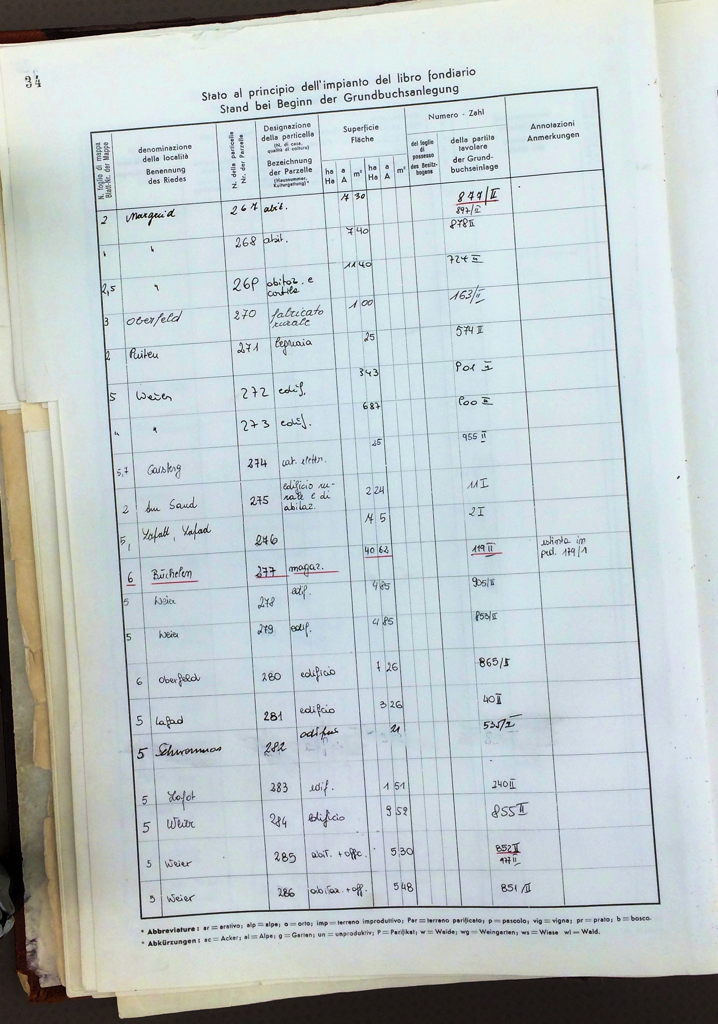 34
Stato al principio dell'impianto del libro fondiario
Stand bei Beginn der Grundbuchsanlegung
N. foglio di mappa
Blatt-Nr. der Mappe
denominazione
della località
Benennung
des Riedes
N. della particella
Nr. der Parzelle
Designazione
della particella
(N. di casa,
qualità di coltura)
Bezeichnung
der Parzelle
(Hausnummer,
Kulturgattung)*
Superficie
Fläche
ha a m² ha a m²
Ha A Ha A
Numero - Zahl
del foglio di
possesso
des Besitz-
bogens
della partita
tavolare
der Grund-
buchseinlage
Annotazioni
Anmerkungen
2 Margreid 267 abit. 1 30 877/II
897/II
" " 268 abit. 7 40 878 II
2,5 " 269 abitaz. e
cortile 11 40 724 II
3 Oberfeld 270 fabricato
rurale 1 00 163/II
2 271 legnaia 25 574 II
5 Weier 272 edif. 3 43 901 II
" " 273 edif. 6 87 900 II
5,7 274 cab. elettr. 25 955 II
2 Im Sand 275 edificio ru-
rale e di
abitaz. 2 24 11 I
5, Lafatt, Lafad 276 5 2 I
6 Büchelen 277 magaz. 40 62 119 II estinta in
ped. 179/1
5 Weier 278 edif. 4 85 905/II
5 Weier 279 edif. 4 85 853/II
6 Oberfeld 280 edificio 7 26 865/II
5 Lafad 281 edificio 3 26 40 II
5 282 21 535/II
5 Lafot 283 edif. 1 51 240 II
5 Weier 284 edificio 9 52 855 II
5 Weier 285 abit. + offic. 5 30 852 II
977 II
5 Weier 286 abitaz. + off. 5 48 851/II
* Abbreviature: ar = arativo, alp = alpe, o = orto, imp = terreno improduttivo, Par = terreno parificato, p = pascolo, vig = vigna, pr = prato, b = bosco.
* Abkürzungen: ac = Acker, al = Alpe, g = Garten, un = unproduktiv, P = Parifikat, w = Weide, wg = Weingarten, ws = Wiese wl = Wald.